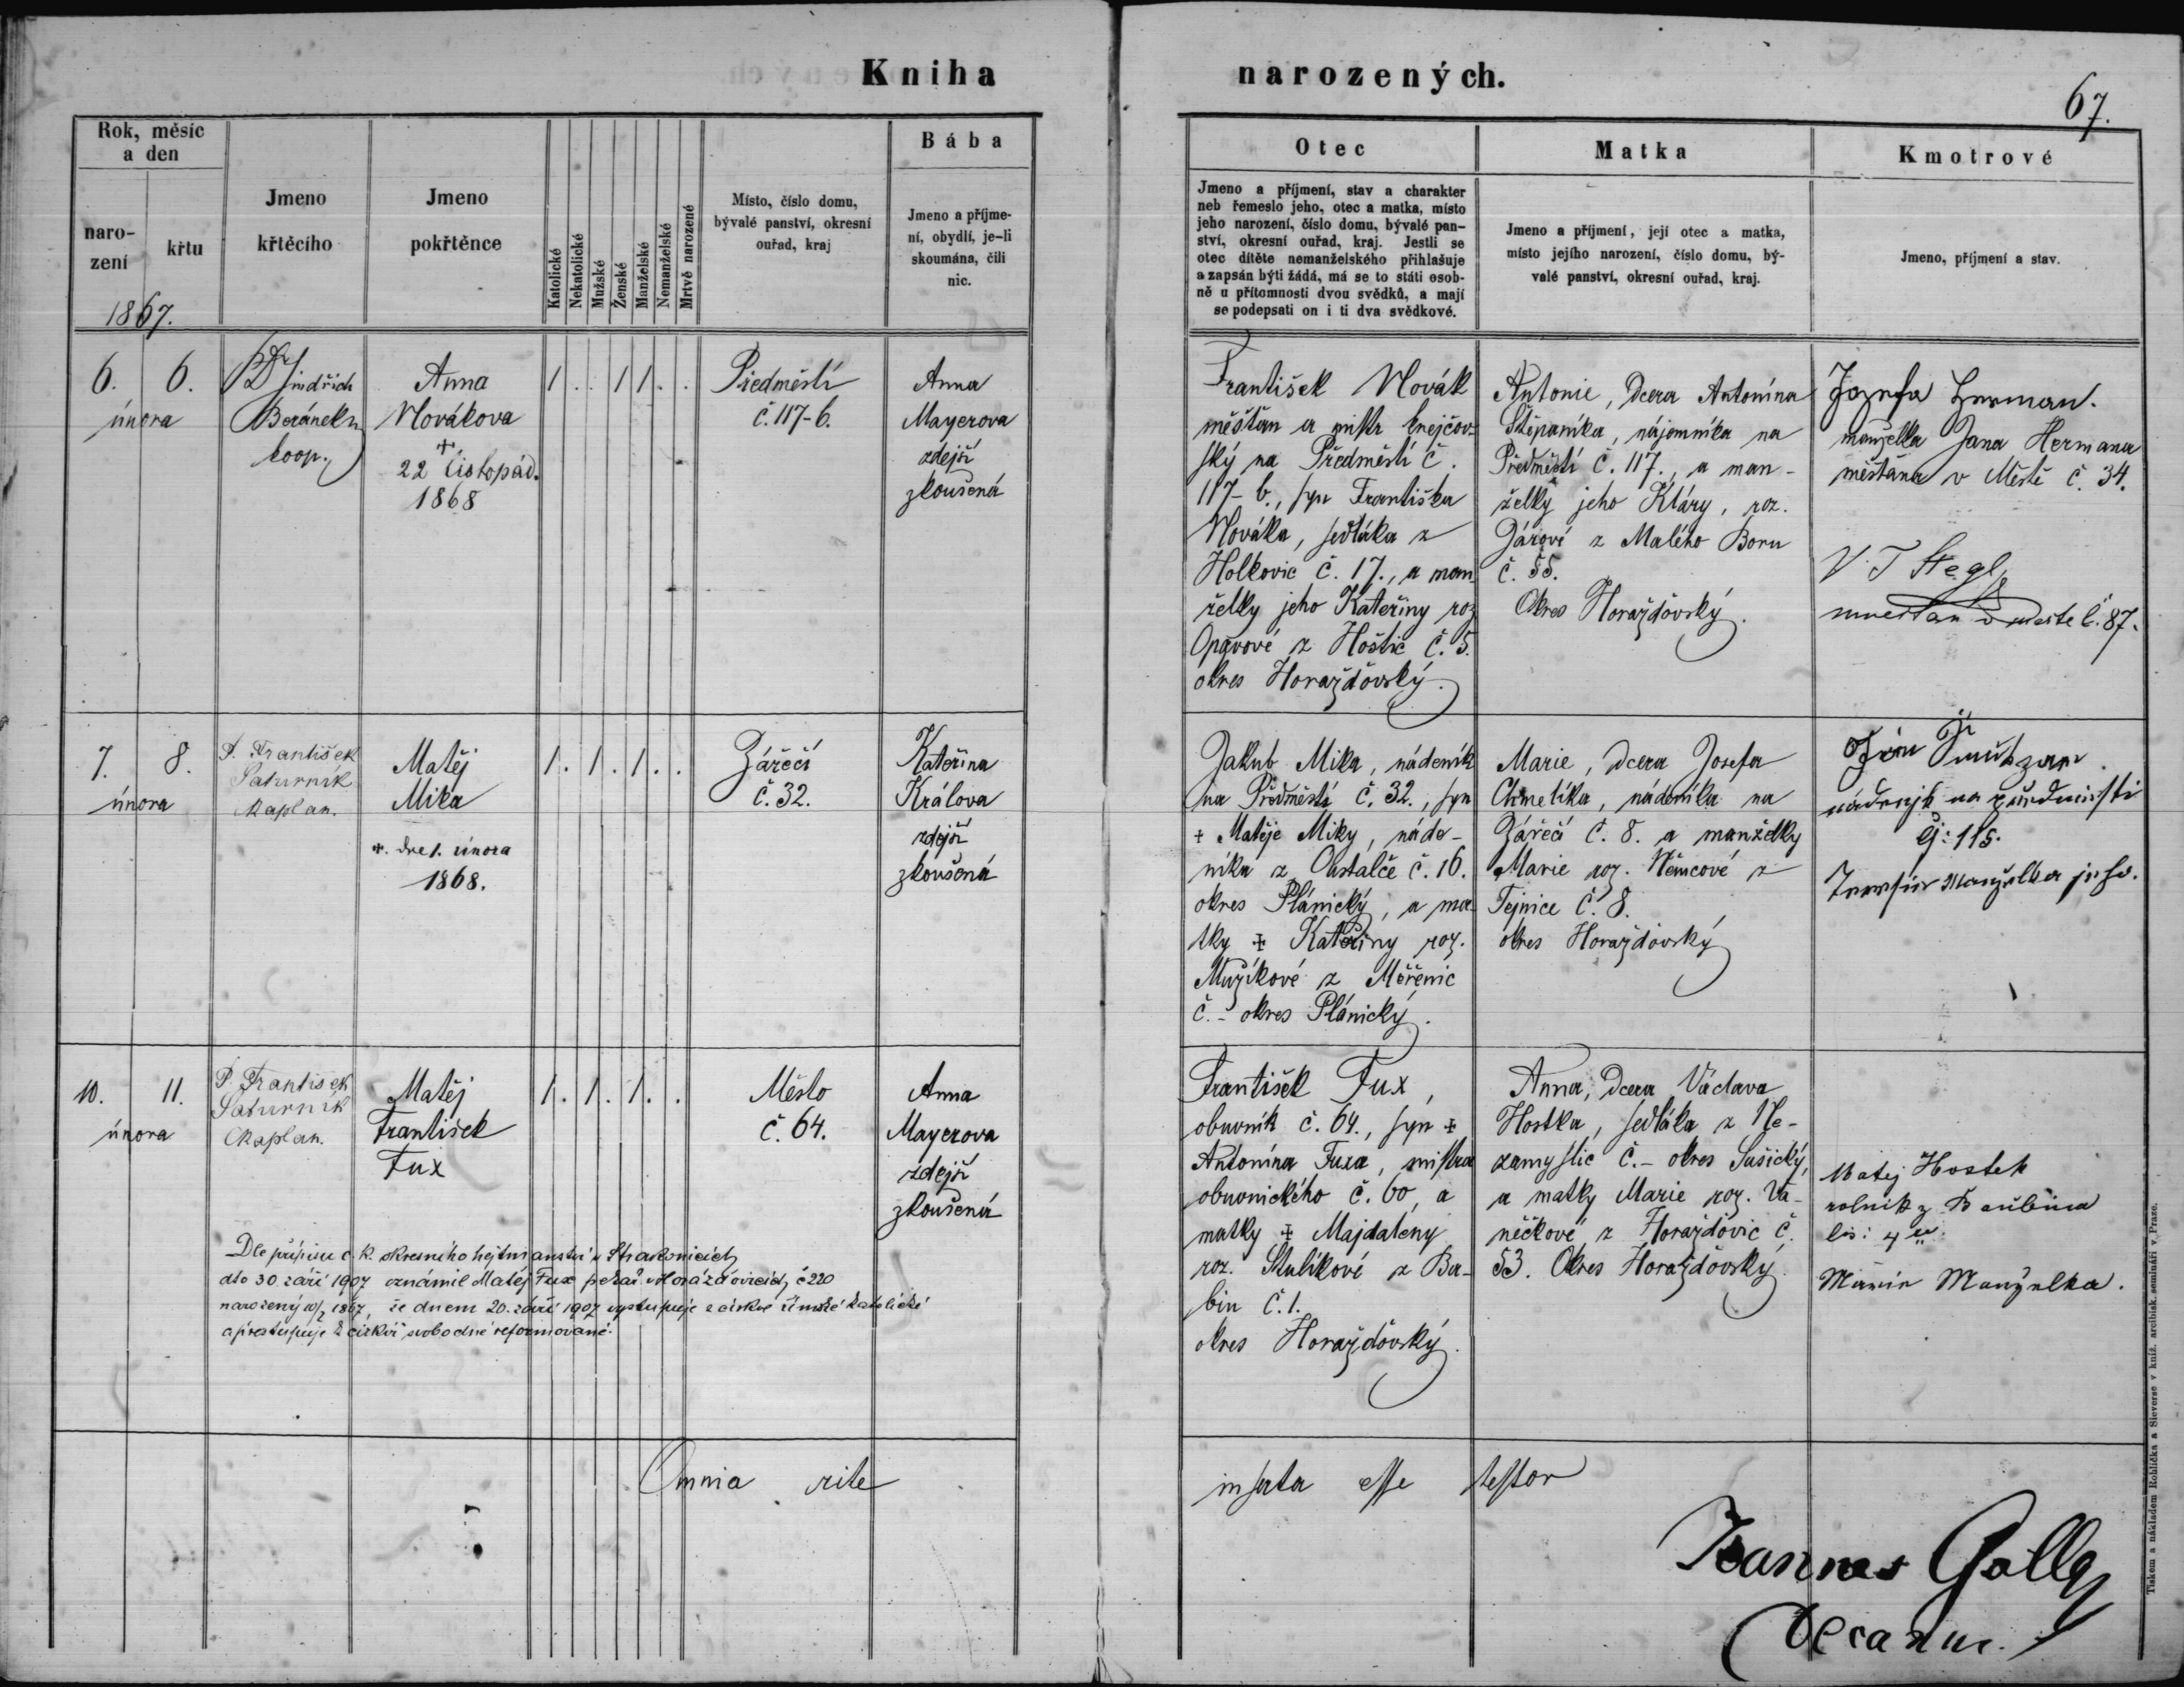 Kniha narozených.
67.
Rok, měsíc
a den
naro-
zení
křtu
1867.
Jmeno
křtěcího
Jmeno
pokřtěnce
Katolické
Nekatolické
Mužské
Ženské
Manželské
Nemanželské
Mrtvě narozené
Místo, číslo domu,
bývalé panství, okresní
ouřad, kraj
Bába
Jmeno a příjme-
ní, obydlí, je-li
skoumána, čili
nic.
Otec
Jmeno a příjmení, stav a charakter
neb řemeslo jeho, otec a matka, místo
jeho narození, číslo domu, bývalé pan-
ství, okresní ouřad, kraj. Jestli se
otec dítěte nemanželského přihlašuje
a zapsán býti žádá, má se to státi osob-
ně u přítomnosti dvou svědků, a mají
se podepsati on i ti dva svědkové.
Matka
Jmeno a příjmení, její otec a matka,
místo jejího narození, číslo domu, bý-
valé panství, okresní ouřad, kraj.
Kmotrové
Jmeno, příjmení a stav.
6. 6.
února
Jindřich
Beránek
koop.
Anna
Novákova
+
22 listopád.
1868
1 . . 1 1 . .
Předměstí
č. 117-b.
Anna
Mayerova
zdejší
zkoušená
František Novák
měšťan a mistr krejčov-
ský na Předměstí č.
117-b., syn Františka
Nováka, sedláka z
Holkovic č. 17., a man-
želky jeho Kateřiny roz
Opavové z Hoštic č. 5.
okres Horažďovský.
Antonie, dcera Antonína
Štěpaníka, nájomníka na
Předměstí č. 117., a man-
želky jeho Kláry, roz.
Zárové z Malého Boru
č. 55.
Okres Horažďovský.
Josefa Herman.
manželka Jana Hermana
měšťana v Městě č. 34.
V. T Stegl
mnestan v meste č. 87.
7. 8.
února
P. František
Saturník
Kaplan.
Matěj
Mika
+. dne 1. února
1868.
1 . 1 . 1 . .
Zářečí
č. 32.
Kateřina
Králova
zdejší
zkoušená
Jakub Mika, nádeník
na Předměstí č. 32., syn
+ Matěje Miky, náde-
níka z Obstalče č. 16.
okres Plánický, a ma-
tky + Kateřiny roz.
Muzíkové z Měřenic
č. - okres Plánický.
Marie, dcera Josefa
Chmelíka, nádeníka na
Zářečí č. 8. a manželky
Marie roz. Němcové z
Tejnice č. 8.
okres Horažďovský
nádenjk na předmiesti
čj: 115.
manželka jeho.
10. 11.
února
P. František
Saturník
Kaplan.
Matěj
František
Fux
1 . 1 . 1 . .
Město
č. 64.
Anna
Mayerova
zdejší
zkoušená
František Fux,
obuvník č. 64., syn +
Antonína Fuxa, mistra
obuvnického č. 60, a
matky + Majdaleny
roz. Stulíkové z Ba-
bin č. 1.
okres Horažďovský.
Anna, dcera Václava
Hostka, sedláka z Ne-
zamyslic č. - okres Sušický,
a matky Marie roz. Va-
něčkové z Horažďovic č.
53. Okres Horažďovský.
Matej Hostek
rolnik z
Marie Manželka.
Dle přípisu c. k. okresního hejtmanství v Strakonicích
dto 30. září 1907 oznámil Matěj Fux pekař v Horažďovicích č 220
narozený 10/2 1867, že dnem 20. září 1907 vystupuje z církve římské katolické
a přestupuje k církvi svobodné reformované.
Omnia rite inserta esse testor
Joannes Golly
Decanus.
Tiskem a nákladem Rohlíčka a Sieverse v kníž. arcibisk. semináři v Praze.